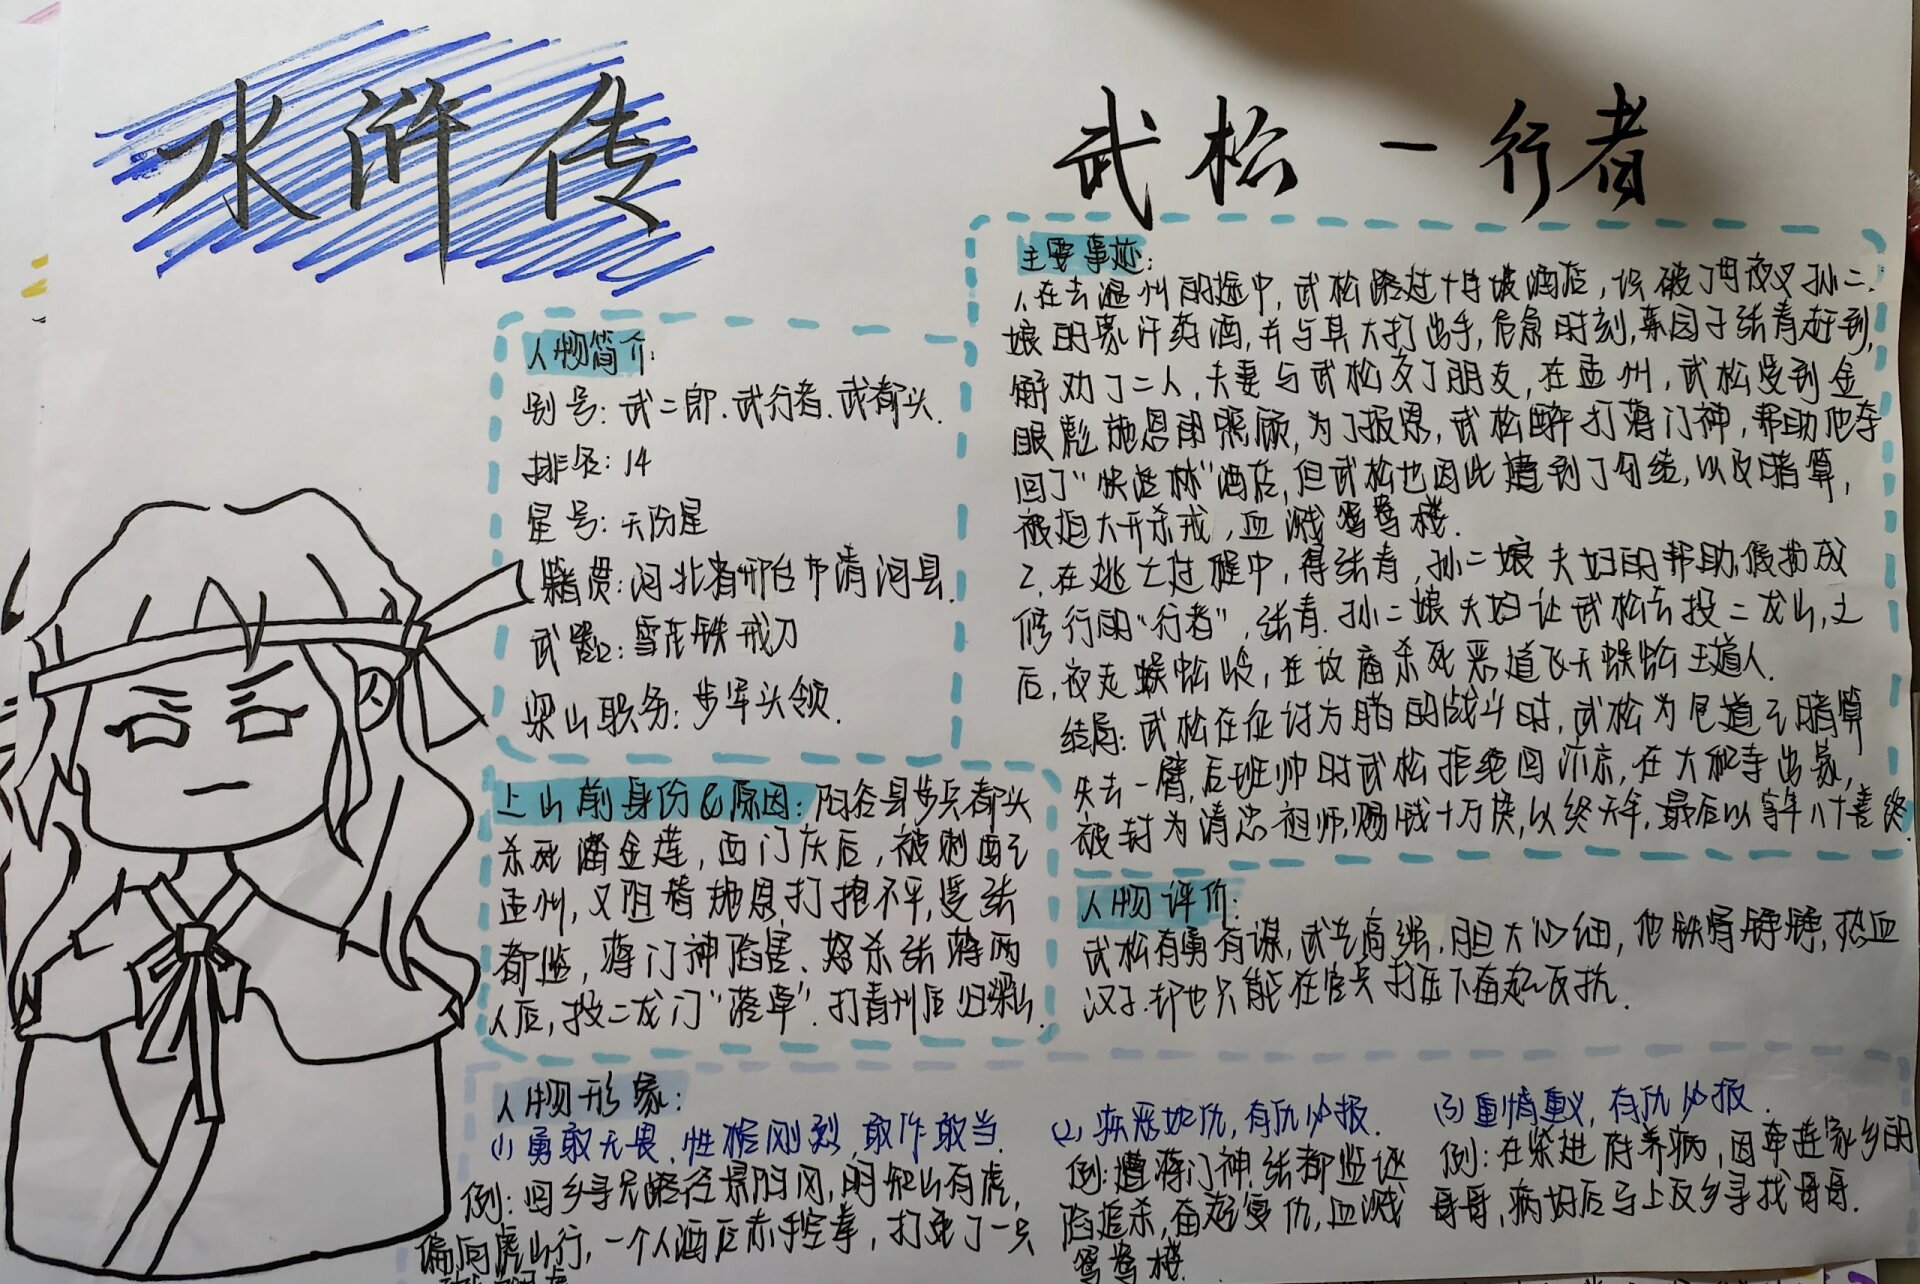 水浒传
武松一行者
人物简介:
别号: 武二郎、武行者、武都头.
排名: 14
星号: 天伤星
籍贯: 河北省邢台市清河县.
武器: 雪花镔铁戒刀
梁山职务: 步军头领.
上山前身份&原因: 阳谷县步兵都头
杀死潘金莲, 西门庆后, 被刺配至
孟州, 又因替施恩打抱不平, 受张
都监, 蒋门神陷害、怒杀张蒋两
人后, 投二龙门“落草”. 打青州后归梁山.
主要事迹:
1、在去温州的途中, 武松路过十字坡酒店, 识破了母夜叉孙二
娘的蒙汗药酒, 并与其大打出手, 危急时刻, 菜园子张青赶到,
解劝了二人, 夫妻与武松交了朋友, 在孟州, 武松受到金
眼彪施恩的照顾, 为了报恩, 武松醉打蒋门神, 帮助他夺
回了“快活林”酒店, 但武松也因此遭到了勾结, 以及暗算,
被迫大开杀戒, 血溅鸳鸯楼.
2. 在逃亡过程中, 得张青, 孙二娘夫妇的帮助, 假扮成
修行的“行者”, 张青. 孙二娘夫妇让武松去投二龙山, 之
后, 夜走蜈蚣岭, 在坟庙杀死恶道飞天蜈蚣王道人.
结局: 武松在征讨方腊的战斗时, 武松为包道乙暗算
失去一臂, 后班师时武松拒绝回汴京, 在六和寺出家,
被封为清忠祖师, 赐钱十万贯, 以终天年, 最后以享年八十善终.
人物评价:
武松有勇有谋, 武艺高强. 胆大心细, 他铁骨铮铮, 热血
汉子. 却也只能在官兵打压下奋起反抗.
人物形象:
(1) 勇敢无畏. 性格刚烈, 敢作敢当.
例: 回乡寻兄路径景阳冈, 明知山有虎,
偏向虎山行, 一个人酒后赤手空拳, 打死了一只
(2) 疾恶如仇, 有仇必报.
例: 遭蒋门神. 张都监诬
陷追杀, 奋起复仇, 血溅
鸳鸯楼.
(3) 重情重义, 有仇必报.
例: 在柴进府养病, 因牵连家乡的
哥哥, 病好后马上反乡寻找哥哥.